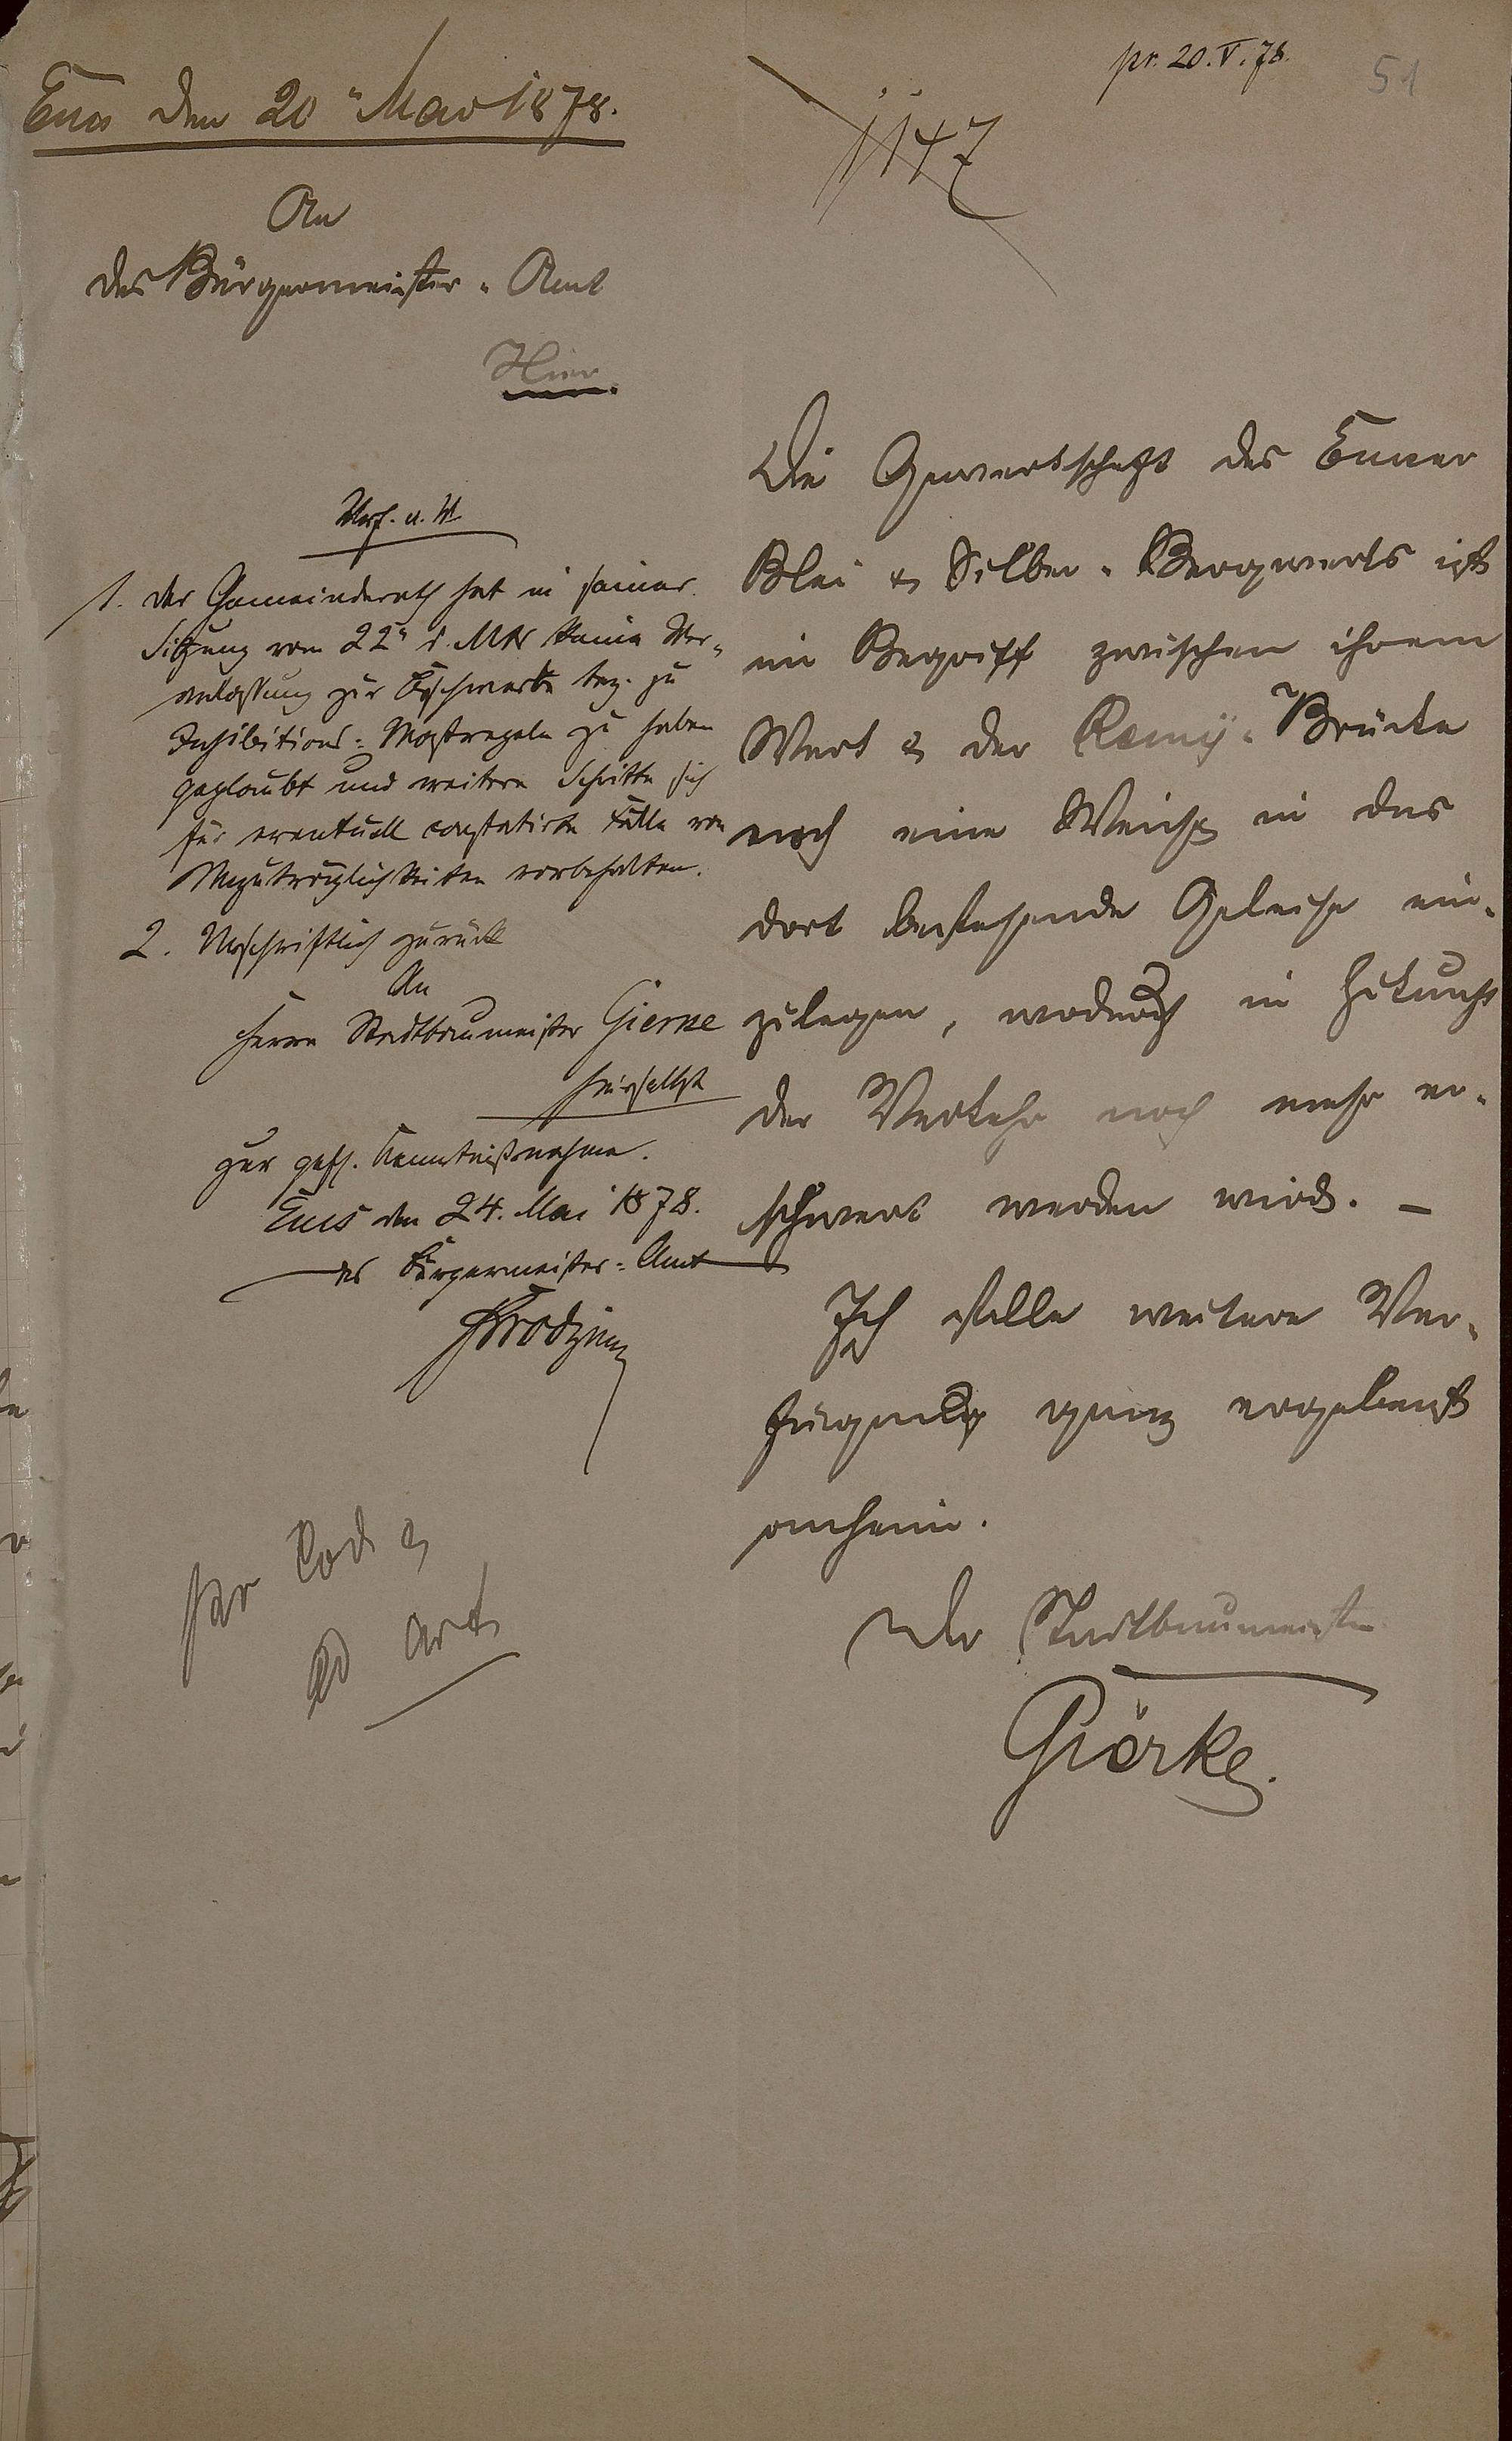 pr. 20.V.78.
51
1147
Ems den 20" Mai 1878.
An
das Bürgermeister-Amt
Hier.
Die Gewerkschaft des Emser
Blei & Silber-Bergwerks ist
im Begriff zwischen ihrem
Werk & der Remÿ-Brücke
noch eine Weiche in das
dort bestehende Geleise ein-
zulegen, wodurch in Zukunft
der Verkehr noch mehr er-
schwert werden wird. –
Ich stelle weitere Ver-
fügung ganz ergebenst
anheim.
Der Stadtbaumeister
Giörke.
1. Der Gemeinderath hat in seiner
Sitzung vom 22" d. Mts keine Ver-
anlassung zur Beschwerde bez. zu
Inhibitions-Maßregeln zu haben
geglaubt und weitere Schritte sich
für eventuell constatirte Fälle von
Unzuträglichkeiten vorbehalten.
2. Urschriftlich zurück
An
Herrn Stadtbaumeister Gierke
hierselbst
zur gefl. Kenntnißnahme.
Ems den 24. Mai 1878.
Das Bürgermeister-Amt